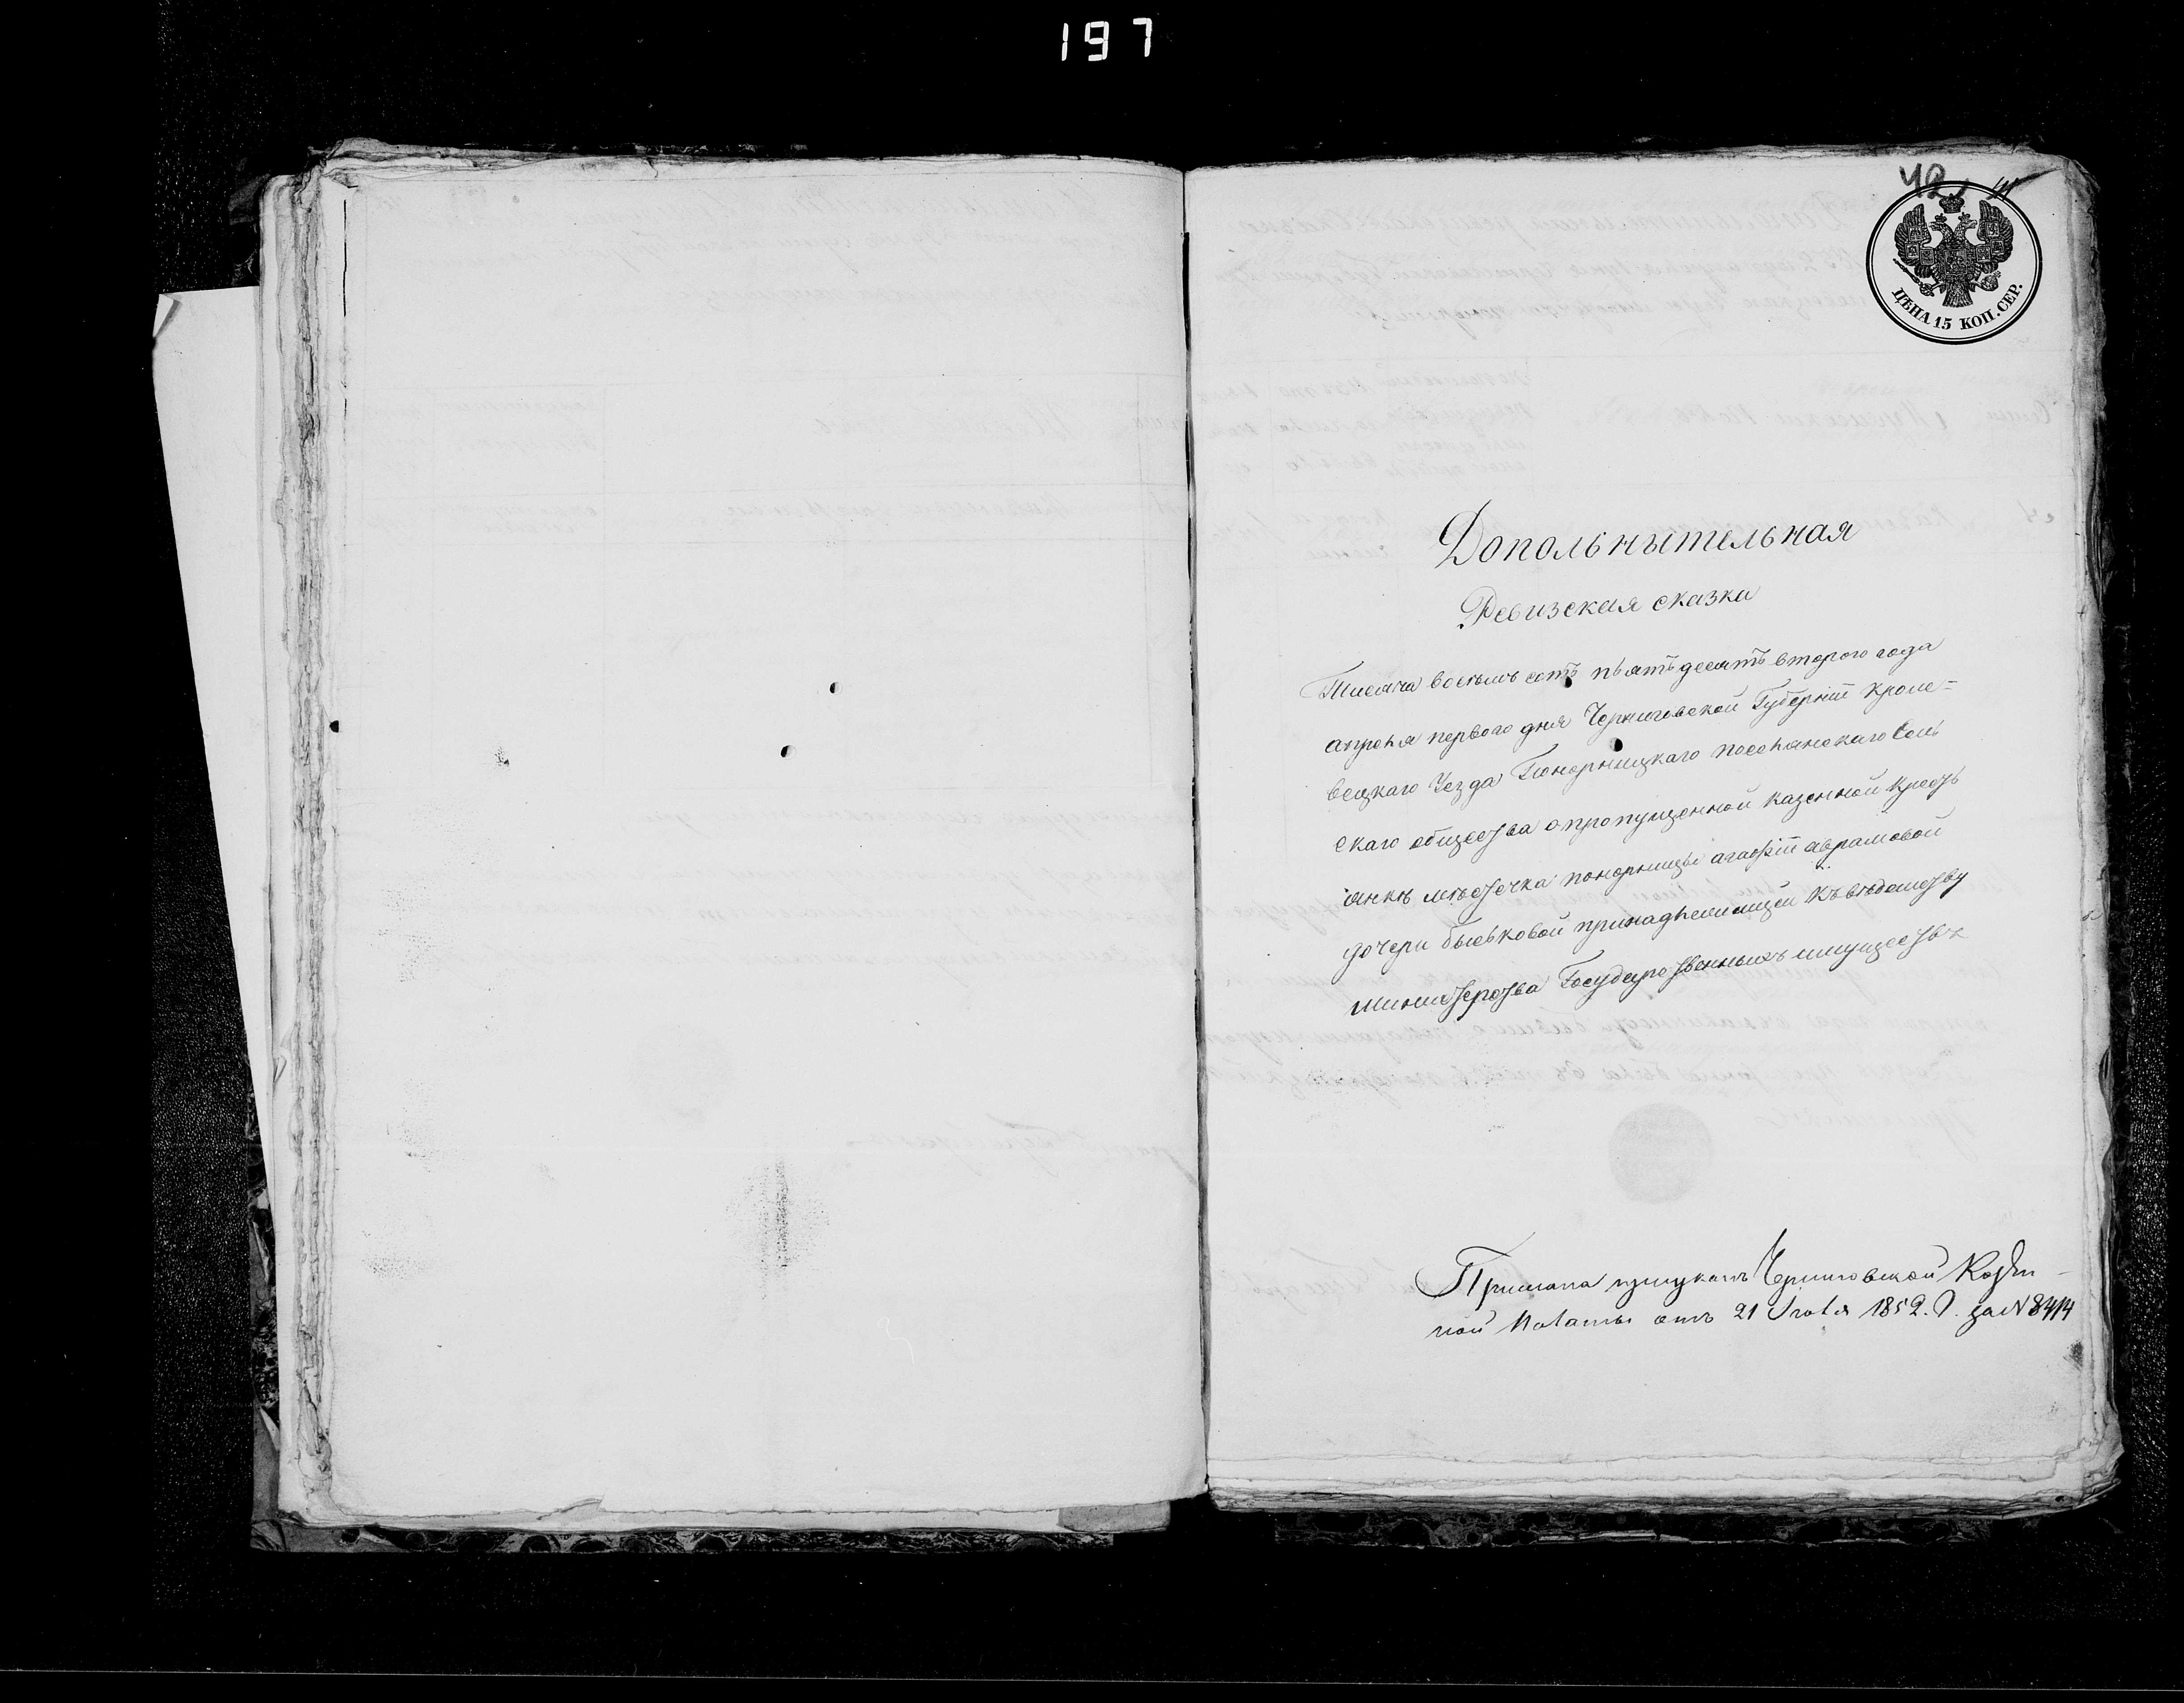 197
42
ЦѢНА 15 КОП. СЕР.
Дополънытельная
Ревизская сказка
Тисяча восемъ сотъ пъятъ десятъ второго года
апреля первого дня Черниговской Губерніи Кроле=
вецкаго Уезда Понорницкаго поселянскаго Сель
скаго общества о пропущенной казенной крестъ
янкѣ мѣстечка понорницы агафіи аврамовой
дочери принадлежащей къ вѣдомству
министерства Государственныхъ имуществъ
Черниговской Казен-
ной Палаты отъ 21 Іюля 1852. Г. за № 8414